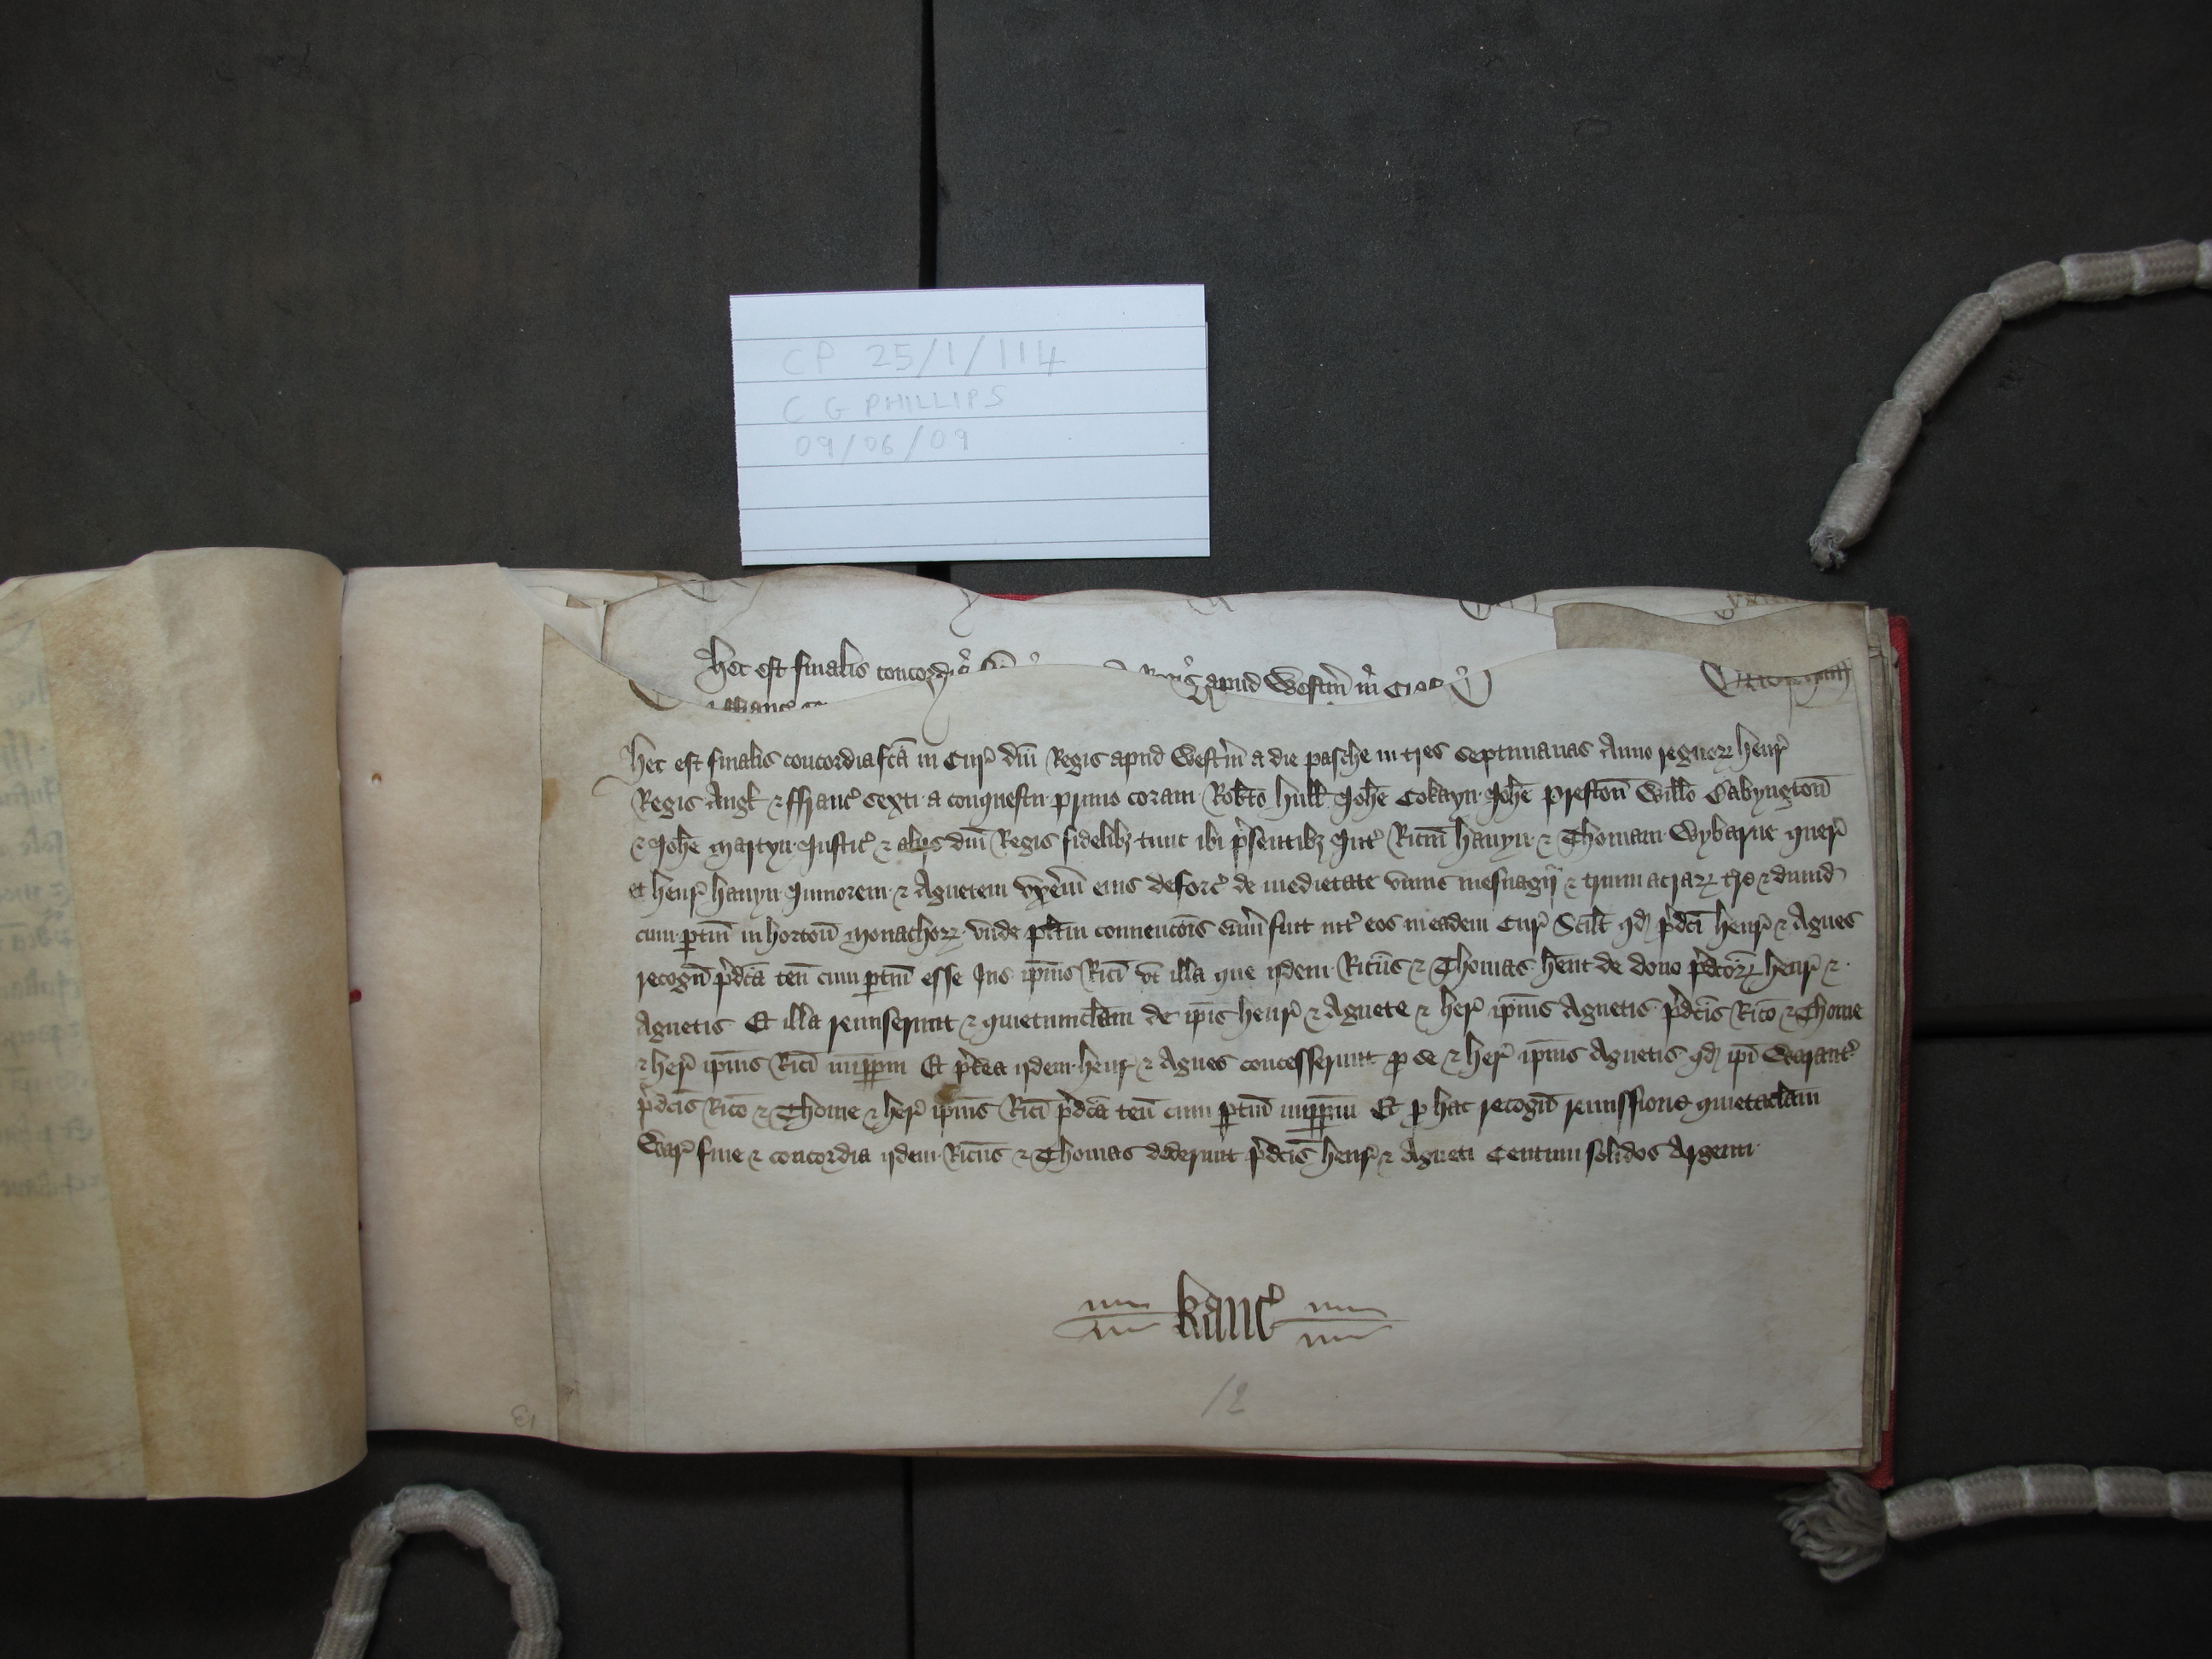 CP 25/1/114
C G PHILLIPS
09/06/09
Hec est finalis concordia
apud Westm̄ in
Hec est finalis concordia fc̄a in Cur̉ dn̄i Regis apud Westm̄ a die pasche in tres septimanas Anno regnoꝝ henr̉
Regis Angl̄ ⁊ ffranc̉ sexti a conquestu primo coram Rob̄to Hull Joh̄e Cokayn Joh̄e Preston̄ Will̄o Babyngton̄
⁊ Joh̄e Martyn Justic̉ ⁊ alijs dn̄i Regis fidelibꝫ tunc ibi p̉sentibꝫ Int̉ Ric̄m hanyn ⁊ Thomam Wybarne quer̉
et henr̉ hanyn Juniorem ⁊ Agnetem vx̄em eius deforc̉ de medietate vnius mesuagij ⁊ trium acraꝝ t̉re ⁊ dimid
cum ꝑtin̄ in horton̄ Monachoꝝ vnde pl̄itm conuenc̄ois sum̄ fuit int̉ eos in eadem Cur̉ Scil̄t qd̄ p̉dc̄i henr̉ ⁊ Agnes
recogn̄ p̉dc̄a ten̄ cum ꝑtin̄ esse Jus ip̄ius Ric̄i vt illa que ijdem Ric̄us ⁊ Thomas h̄ent de dono p̉dc̄oꝝ henr̉ ⁊
Agnetis Et illa remiserunt ⁊ quietumclam̄ de ip̄is henr̉ ⁊ Agnete ⁊ her̉ ip̄ius Agnetis p̉dc̄is Ric̄o ⁊ Thome
⁊ her̉ ip̄ius Ric̄i imꝑꝑm Et p̉t̉ea ijdem henr̉ ⁊ Agnes concesserunt ꝓ se ⁊ her̉ ip̄ius Agnetis qd̄ ip̄i Warant̉
p̉dc̄is Ric̄o ⁊ Thome ⁊ her̉ ip̄ius Ric̄i p̉dc̄a ten̄ cum ꝑtin̄ imꝑꝑm Et ꝓ hac recogn̄ remissione quietaclam̄
War̉ fine ⁊ concordia ijdem Ric̄us ⁊ Thomas dederunt p̉dc̄is henr̉ ⁊ Agneti Centum solidos Argenti
Kanc̉
12
13